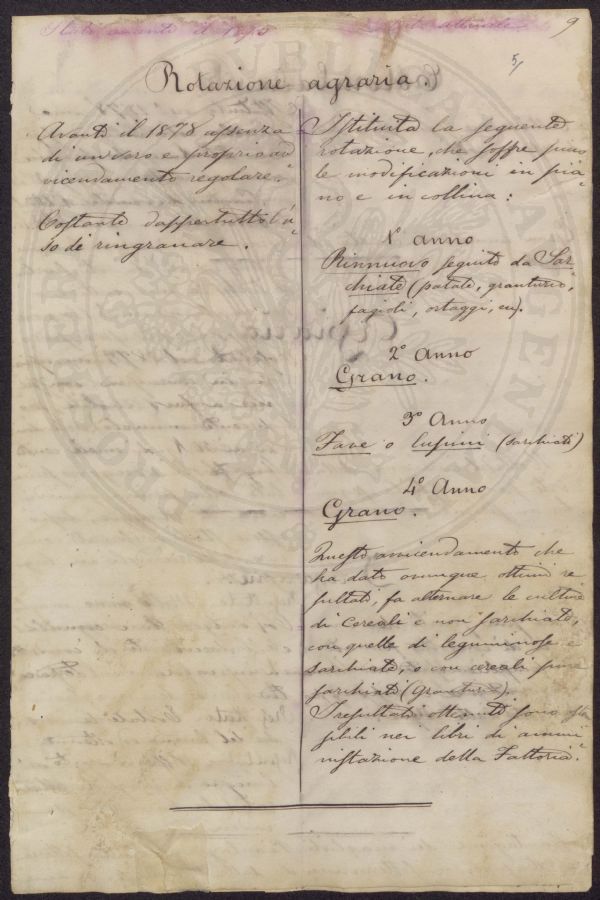 Stato avanti il 1878
9
5/
Rotazione agraria.
Avanti il 1878 assenza
di un vero e proprio av
vicendamento regolare.
Costante dappertutto l'u=
so di ringranare.
Istituita la seguente
rotazione, che soffre picco
le modificazioni in pia=
no e in collina:
1° anno
Rinnuovo seguito da Sar
chiate (patate, granturco,
fagioli, ortaggi, ecc).
2° Anno
Grano.
3° Anno
Fave o lupini (sarchiati)
4° Anno
Grano.
Questo avvicendamento che
ha dato ovunque ottimi re
sultati, fa alternare le culture
di cereali e non sarchiate,
con quelle di leguminose e
sarchiate, o con cereali pure
sarchiati (granturco).
I resultati ottenuti sono
sibili nei libri di ammi
nistrazione della Fattoria.